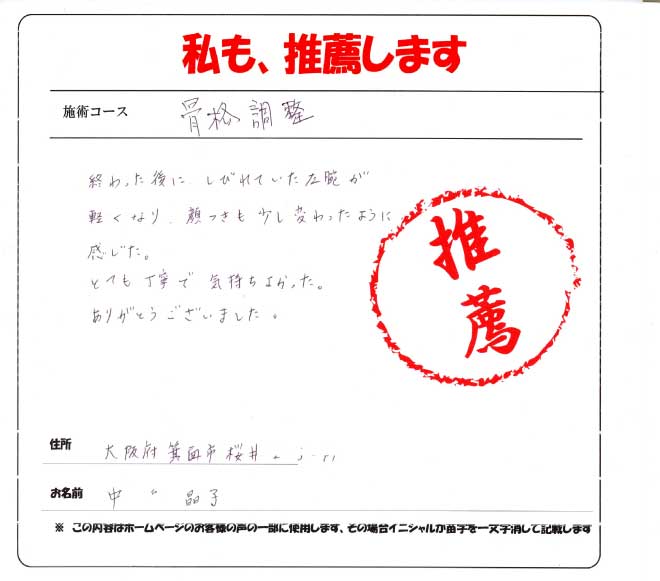 私も、推薦します
施術コース 骨格調整
終わった後に、しびれていた左腕が
軽くなり、顔つきも少し変わったように
感じた。
とても丁寧で 気持ちよかった。
ありがとうございました。
推薦
住所 大阪府箕面市桜井
お名前 中 晶子
※ この内容はホームページのお客様の声の一部に使用します、その場合イニシャルか苗字を一文字消して記載します